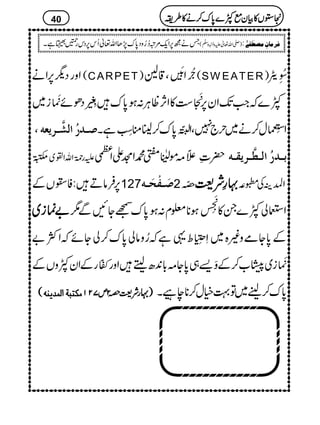 40 کپڑے پاک کرنے کا طریقہ مع نجاستوں کا بیان
فرمانِ مصطفےٰ (صلی اللہ تعالیٰ علیہ والہ وسلم) جس نے مجھ پر ایک مرتبہ دُرُود پاک پڑھا اللہ تعالیٰ اُس پر دس رحمتیں بھیجتا ہے۔
سویٹر (SWEATER)، جُرّابیں، قالین (CARPET) اور دیگر پُرانے
کپڑے کہ جب تک ان پر نَجاست کا اثر ظاہر نہ ہو پاک ہیں بغیر دھوئے نَماز میں
اِستِعمال کرنے میں حرج نہیں، البتّہ پاک کر لینا مناسب ہے۔ صدرُ الشَّریعہ،
بدرُ الطَّریقہ حضرتِ علّامہ مولیٰنا مفتی محمد امجد علی اعظمی علیہ رحمۃ اللہ القوی مکتبۃ
المدینہ کی مطبوعہ بہارِ شریعت حصّہ 2 صَفْحَہ 127 پر فرماتے ہیں: فاسقوں کے
استعمالی کپڑے جن کا نجِس ہونا معلوم نہ ہو پاک سمجھے جائیں گے مگر بے نمازی
کے پاجامے وغیرہ میں اِحتیاط یہی ہے کہ رومالی پاک کر لی جائے کہ اکثر بے
نمازی پیشاب کر کے ویسے ہی پاجامہ باندھ لیتے ہیں اور کفار کے ان کپڑوں کے
پاک کر لینے میں تو بہت خیال کرنا چاہیے۔ (بہارِ شریعت حصہ ۲ ص ۱۲۷ مکتبۃ المدینہ)